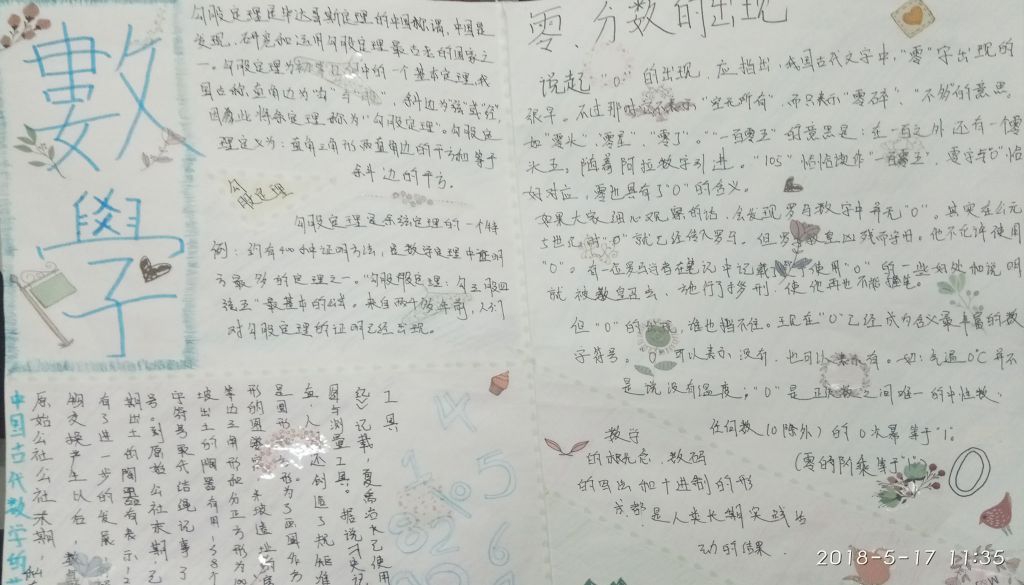 數學
勾股定理是毕达哥斯定理的中国称谓,中国是
发现、研究和运用勾股定理最古老的国家之
一。勾股定理为初等几何中的一个基本定理,我
国古称直角边为"勾""股",斜边为"弦"或"径",
因而此将条定理称为"勾股定理"。勾股定
理定义为:直角三角形两直角边的平方和等于
斜边的平方.
勾股定理
勾股定理是余弦定理的一个特
例:约有400种证明方法,是数学定理中证明
方最多的定理之一。"勾股股定理,勾三股四
弦五"最基本的公式。来自两千多年前,人们
对勾股定理的证明已经出现。
零、分数的出现
说起"0"的出现,应指出,我国古代文字中,"零"字出现的
很早。不过那时它不表示"空无所有",而只表示"零碎"、"不多"的意思。
如"零头"、"零星"、"零丁"。"一百零五"的意思是:在一百之外还有一个零
头五。随着阿拉数字引进。"105"恰恰读作"一百零五",零字与"0"恰
好对应,零也具有了"0"的含义。
如果大家细心观察的话,会发现罗马数字中并无"0"。其实在公元
5世纪时"0"就已经传入罗马。但罗马教皇凶残而守旧。他不允许使用
"0"。有一位罗马学者在笔记中记载了使用"0"的一些好处和说明
就被教皇召去,施行了拶刑,使他再也不能握笔。
但"0"的出现,谁也挡不住。现在"0"已经成为含义最丰富的数
字符号。"0"可以表示没有,也可以表示有。如:气温0℃并不
是说没有温度;"0"是正负数之间唯一的中性数、
任何数(0除外)的0次幂等于"1"。
(零的阶乘等于"1") 0
数字
的概念、数码
的写出和十进制的形
成都是人类长期实践活
动的结果.
中国古代数字的
原始公社公社末期,私
领交换产生以后,数
有了进一步的发展,
期出土的陶器有表示12
号。到原始公社末期,已
字符号取代结绳记事了
坡出土的陶器有用1~8个
等边三角形和分正方形为100
形的图案,半坡遗址的
是圆形。为了画圆作方
直,人们还创造了规矩准
图与测量工具。据说《史记
纪》记载,夏禹治水已使用
工具
4 1 5 0 8 2 2 6
2018-5-17 11:35